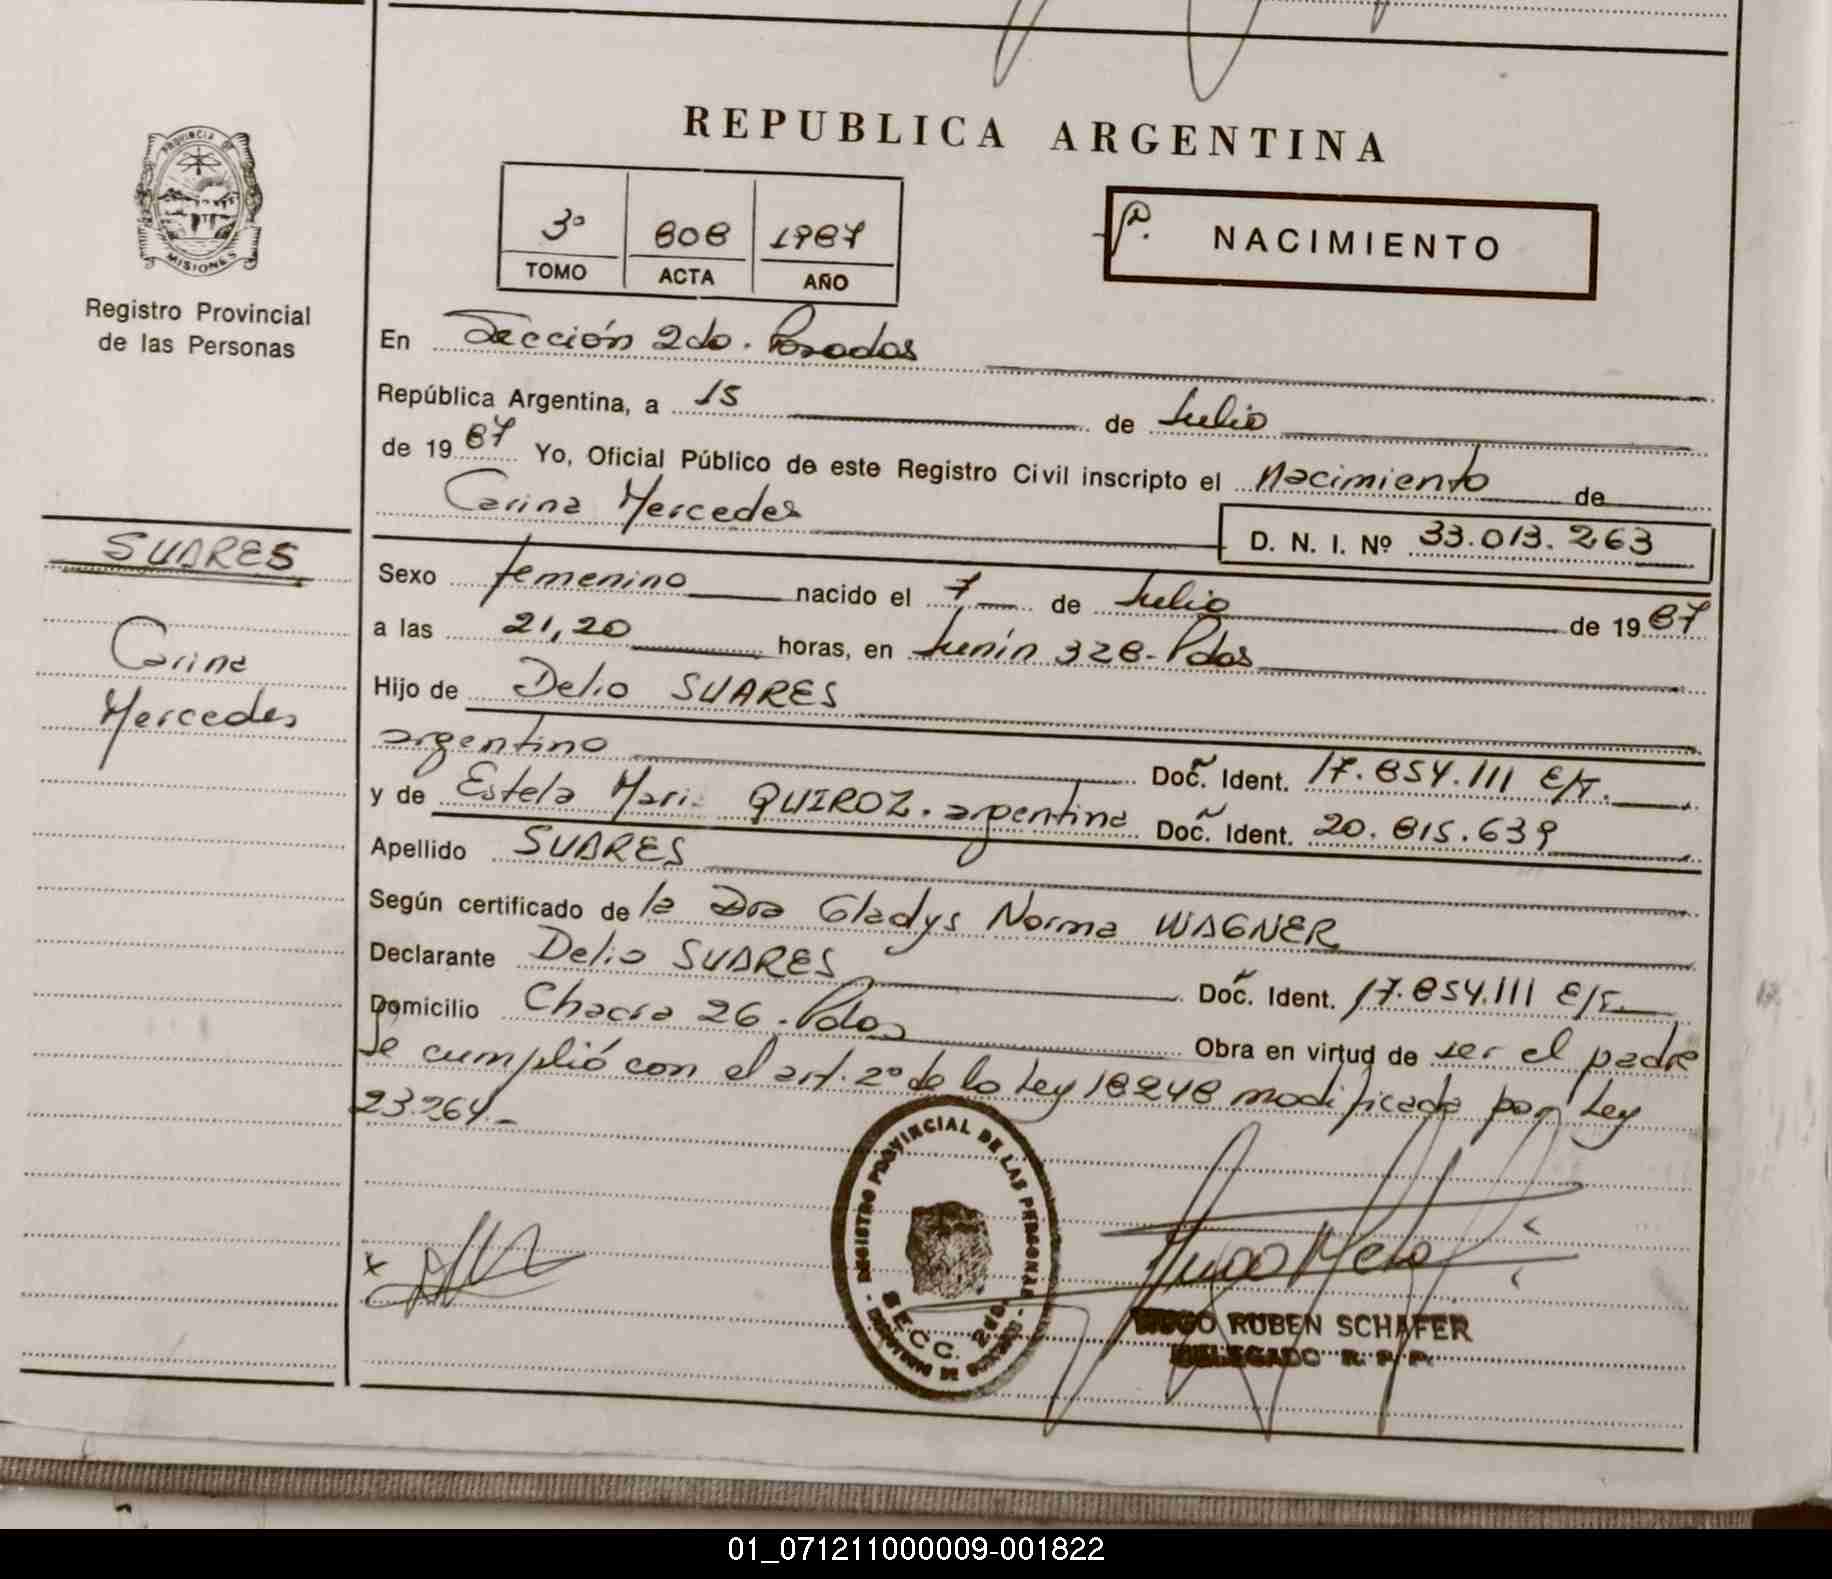 REPUBLICA ARGENTINA
PROVINCIA DE
MISIONES
Registro Provincial
de las Personas
3º 808 1987
TOMO ACTA AÑO
NACIMIENTO
En Sección 2da. Posadas
República Argentina, a 15 de Julio
de 19 87 Yo, Oficial Público de este Registro Civil inscripto el Nacimiento de
Carina Mercedes
D. N. I. Nº 33.013.263
SUARES
Carina
Mercedes
Sexo femenino nacido el 7 de Julio de 19 87
a las 21,20 horas, en Junín 328-Pdas
Hijo de Delio SUARES
argentino Doc. Ident. 17.854.111 E/T.
y de Estela Maris QUIROZ. argentina Doc. Ident. 20.815.639
Apellido SUARES
Según certificado de la Dra Gladys Norma WAGNER
Declarante Delio SUARES Doc. Ident. 17.854.111 E/T.
Domicilio Chacra 26. Pdas Obra en virtud de ser el padre
Se cumplió con el art. 2º de la Ley 18248 modificada por Ley
23.264.-
REGISTRO PROVINCIAL DE LAS PERSONAS
SECC. 2da
x
HUGO RUBEN SCHAFER
DELEGADO R. P. P.
01_071211000009-001822